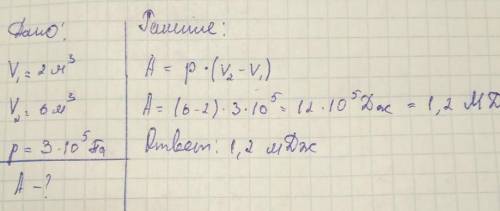 Дано:
V₁ = 2 м³
V₂ = 6 м³
p = 3·10⁵ Па
A - ?
Решение:
A = p·(V₂ - V₁)
A = (6-2)·3·10⁵ = 12·10⁵ Дж = 1,2 МД
Ответ: 1,2 мДж